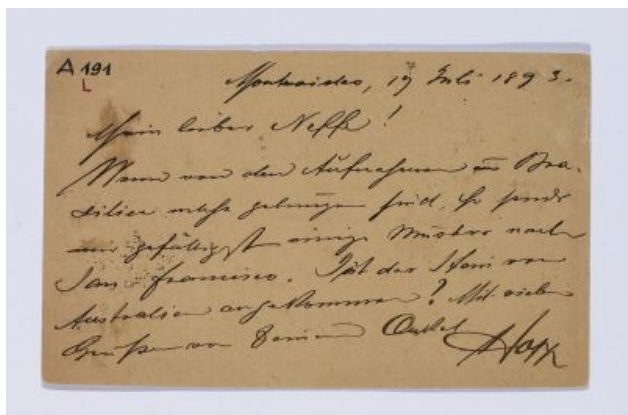 A 191
L
Montevideo, 19 Juli 1893.
Mein lieber Neffe!
Wenn von den Aufnahmen in Bra-
silien welche gelungen sind, so sende
mir gefälligst einige Muster nach
San Francisco. Ist der Stein von
Australien angekommen? Mit vielen
Grüßen von Deinem Onkel